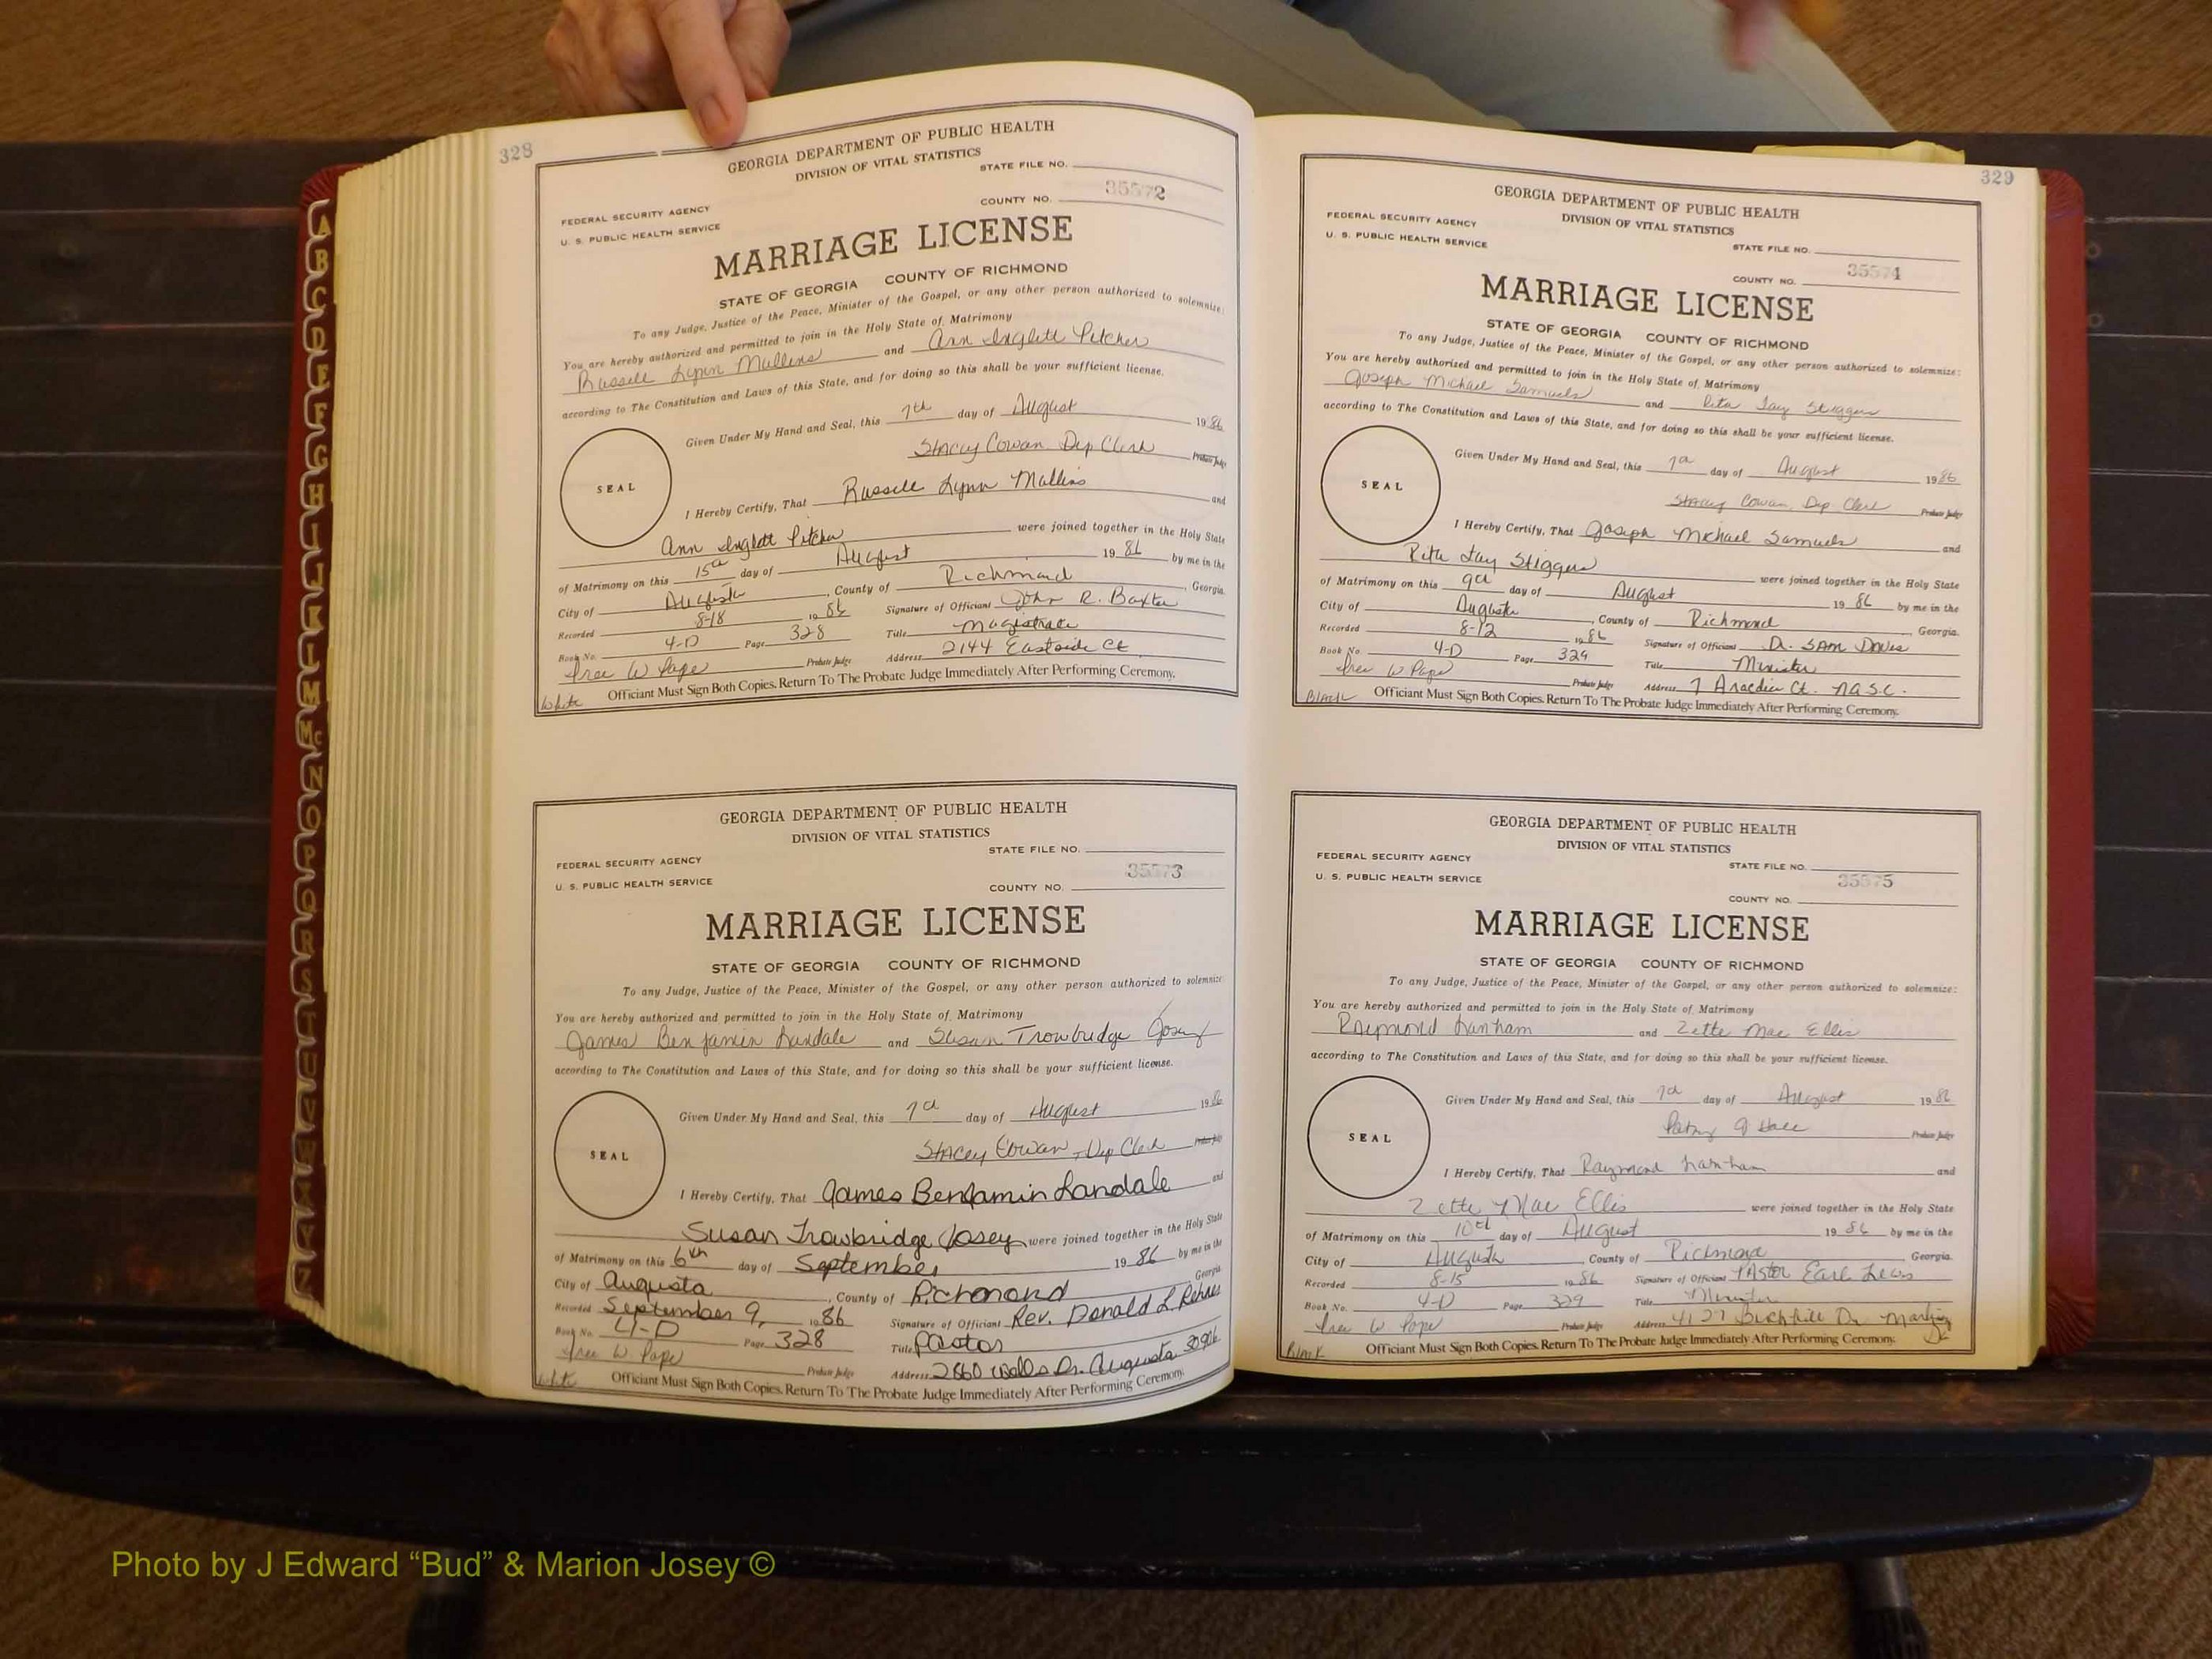 328
GEORGIA DEPARTMENT OF PUBLIC HEALTH
DIVISION OF VITAL STATISTICS
STATE FILE NO.
35572
FEDERAL SECURITY AGENCY
COUNTY NO.
U. S. PUBLIC HEALTH SERVICE
MARRIAGE LICENSE
STATE OF GEORGIA COUNTY OF RICHMOND
To any Judge, Justice of the Peace, Minister of the Gospel, or any other person authorized to solemnize:
You are hereby authorized and permitted to join in the Holy State of Matrimony
Russell Lynn Mullins and Ann Inglett Pitcher
according to The Constitution and Laws of this State, and for doing so this shall be your sufficient license.
Given Under My Hand and Seal, this 7th day of August 1986
Stacey Cowan Dep Clerk Probate Judge
SEAL
I Hereby Certify, That Russell Lynn Mullins and
Ann Inglett Pitcher were joined together in the Holy State
of Matrimony on this 15th day of August 1986 by me in the
City of Augusta, County of Richmond, Georgia.
Recorded 8-18 1986 Signature of Officiant John R. Baxter
Book No. 4-D Page 328 Title Magistrate
W Pape Probate Judge Address 2144 Eastside Ct
White Officiant Must Sign Both Copies. Return To The Probate Judge Immediately After Performing Ceremony.
GEORGIA DEPARTMENT OF PUBLIC HEALTH
DIVISION OF VITAL STATISTICS
STATE FILE NO.
FEDERAL SECURITY AGENCY
35573
U. S. PUBLIC HEALTH SERVICE
COUNTY NO.
MARRIAGE LICENSE
STATE OF GEORGIA COUNTY OF RICHMOND
To any Judge, Justice of the Peace, Minister of the Gospel, or any other person authorized to solemnize:
You are hereby authorized and permitted to join in the Holy State of Matrimony
James Benjamin Landale and Susan Trowbridge Josey
according to The Constitution and Laws of this State, and for doing so this shall be your sufficient license.
Given Under My Hand and Seal, this 7th day of August 1986
Stacey Cowan, Dep Clerk Probate Judge
SEAL
I Hereby Certify, That James Benjamin Landale and
Susan Trowbridge Josey were joined together in the Holy State
of Matrimony on this 6th day of September 1986 by me in the
City of Augusta, County of Richmond Georgia
Recorded September 9, 1986 Signature of Officiant Rev. Donald L.
Book No. 4-D Page 328 Title Pastor
W. Pape Probate Judge Address 2860 Wells Dr. Augusta 30906
White Officiant Must Sign Both Copies. Return To The Probate Judge Immediately After Performing Ceremony.
329
GEORGIA DEPARTMENT OF PUBLIC HEALTH
DIVISION OF VITAL STATISTICS
FEDERAL SECURITY AGENCY
U. S. PUBLIC HEALTH SERVICE
STATE FILE NO.
35574
COUNTY NO.
MARRIAGE LICENSE
STATE OF GEORGIA COUNTY OF RICHMOND
To any Judge, Justice of the Peace, Minister of the Gospel, or any other person authorized to solemnize:
You are hereby authorized and permitted to join in the Holy State of Matrimony
Joseph Michael Samuels and Rita Fay
according to The Constitution and Laws of this State, and for doing so this shall be your sufficient license.
Given Under My Hand and Seal, this 7th day of August 1986
Stacey Cowan Dep Clerk Probate Judge
SEAL
I Hereby Certify, That Joseph Michael Samuels and
Rita Fay were joined together in the Holy State
of Matrimony on this 9th day of August 1986 by me in the
City of Augusta, County of Richmond, Georgia.
Recorded 8-12 1986 Signature of Officiant Dr. SAM DAVIS
Book No. 4-D Page 329 Title Minister
W Pape Probate Judge Address 7 Ct. N.A.S.C.
Black Officiant Must Sign Both Copies. Return To The Probate Judge Immediately After Performing Ceremony.
GEORGIA DEPARTMENT OF PUBLIC HEALTH
DIVISION OF VITAL STATISTICS
FEDERAL SECURITY AGENCY
STATE FILE NO.
U. S. PUBLIC HEALTH SERVICE
35575
COUNTY NO.
MARRIAGE LICENSE
STATE OF GEORGIA COUNTY OF RICHMOND
To any Judge, Justice of the Peace, Minister of the Gospel, or any other person authorized to solemnize:
You are hereby authorized and permitted to join in the Holy State of Matrimony
Raymond Lanham and Zette Mae Ellis
according to The Constitution and Laws of this State, and for doing so this shall be your sufficient license.
Given Under My Hand and Seal, this 7th day of August 1986
Probate Judge
SEAL
I Hereby Certify, That Raymond Lanham and
Zette Mae Ellis were joined together in the Holy State
of Matrimony on this 10th day of August 1986 by me in the
City of Augusta, County of Richmond Georgia.
Recorded 8-15 1986 Signature of Officiant PAstor Earl Lewis
Book No. 4-D Page 329 Title Minister
W Pape Probate Judge Address 4127 Dr
Black Officiant Must Sign Both Copies. Return To The Probate Judge Immediately After Performing Ceremony.
Photo by J Edward “Bud” & Marion Josey ©